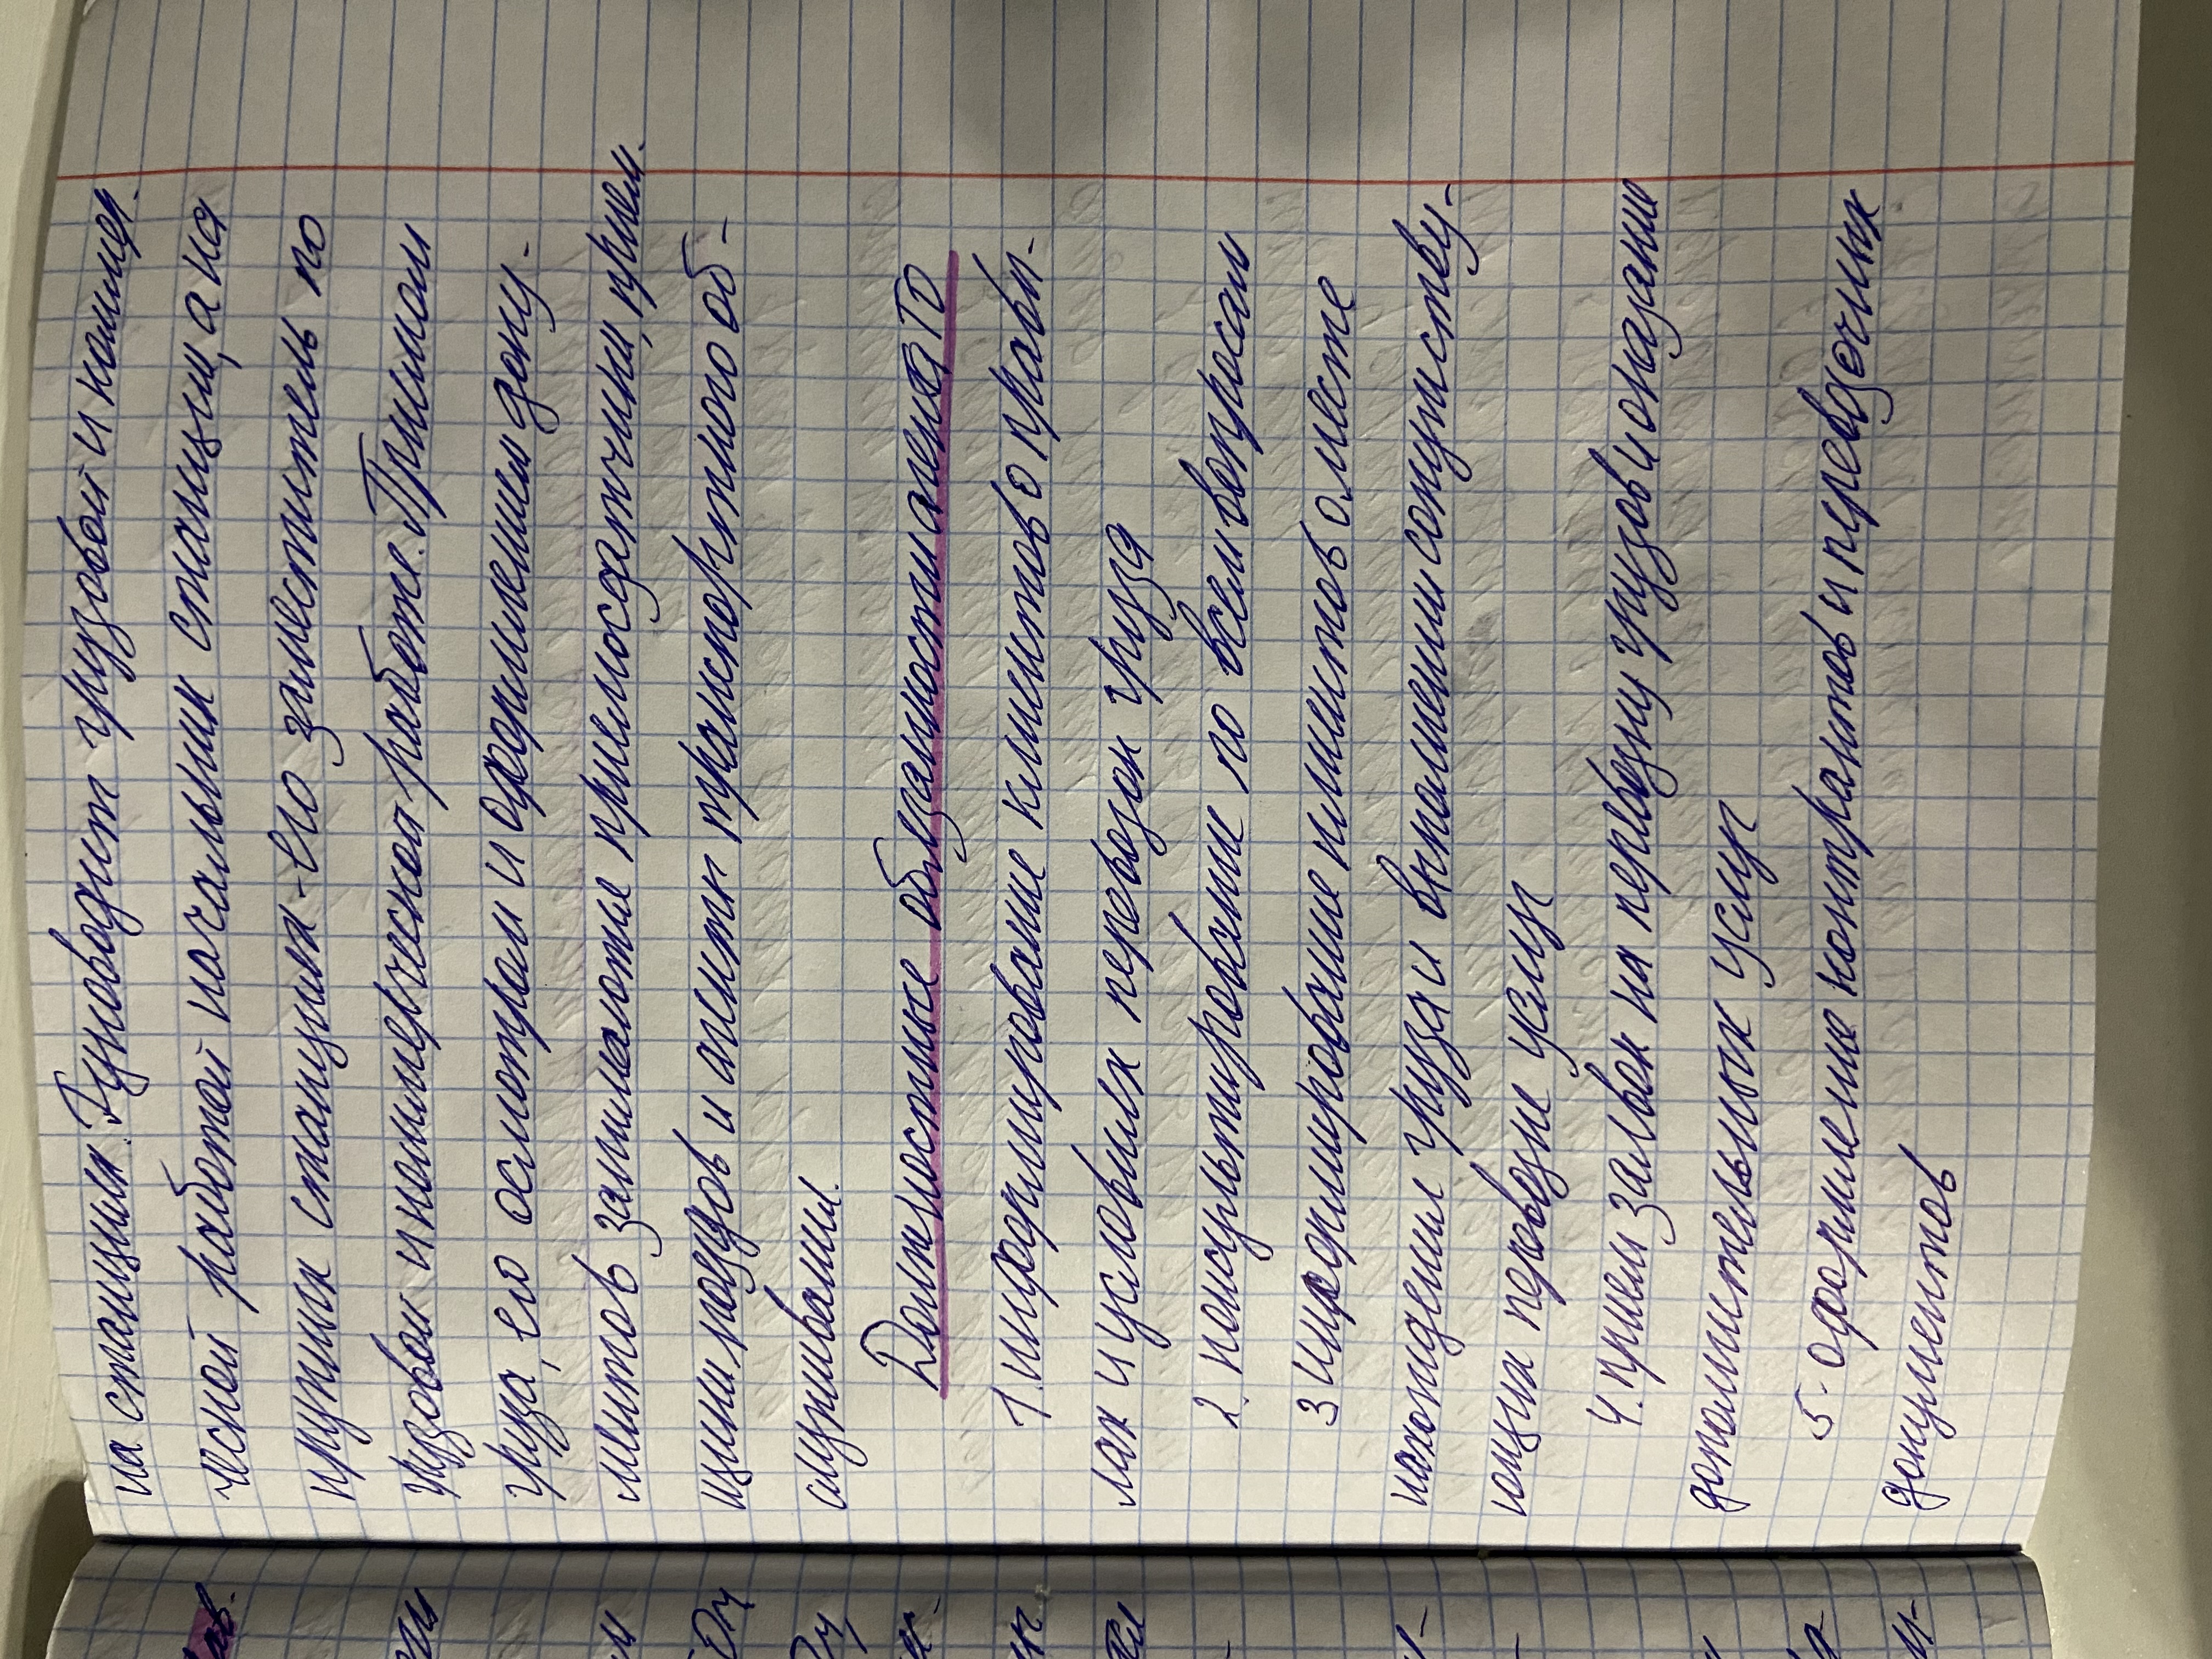 на станциях. Руководит грузовой и коммер-
ческой работой начальник станции, а на
крупных станциях - его заместитель по
грузовой и коммерческой работе. Приемом
груза, его осмотром и оформлением доку-
ментов занимаются приемосдатчики, прием.
щики поездов и агенты транспортного об-
служивания.
Должностные обязанности агента ТО
1. информирование клиентов о прави-
лах и условиях перевозок груза
2. консультирование по всем вопросам
3 информирование клиентов о месте
нахождении груза и выполнении сопутству-
ющих перевозке услуг
4. прием заявок на перевозку грузов и оказание
дополнительных услуг
5. оформление контрактов и перевозочных
документов